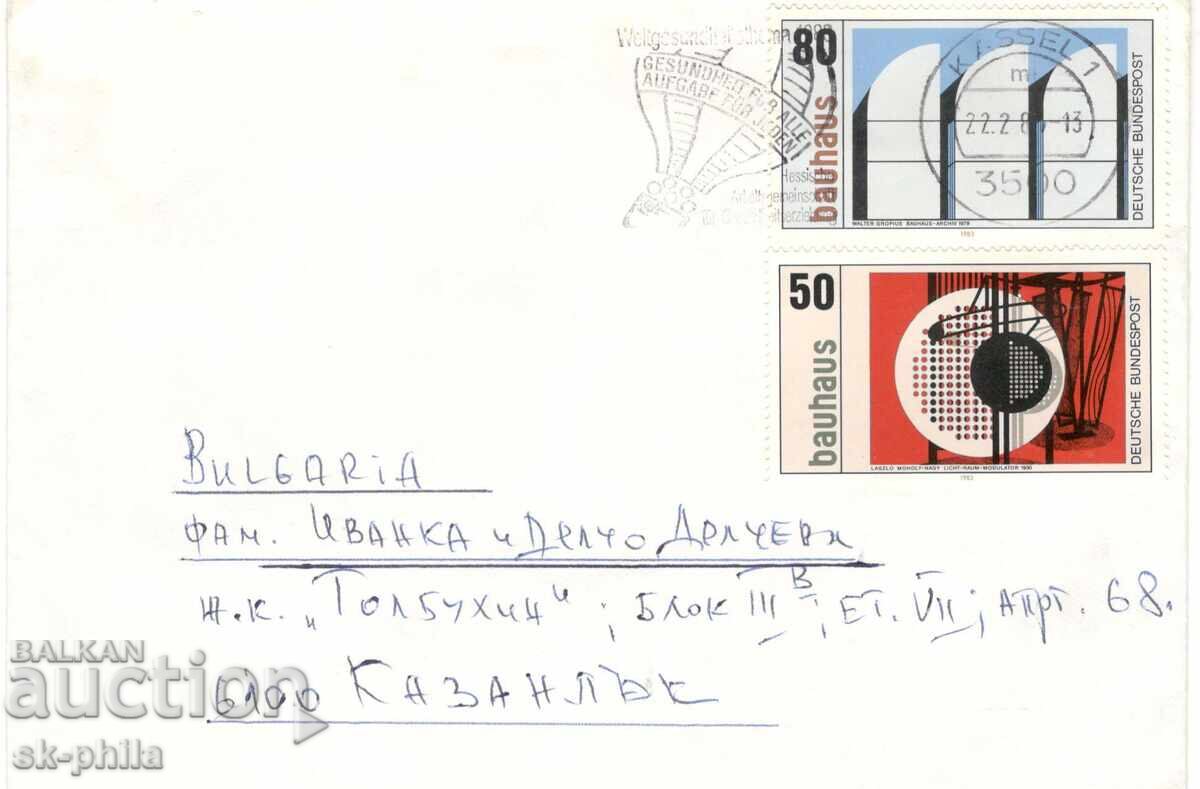 Weltgesundheitsthema
GESUNDHEIT FÜR ALLE
AUFGABE FÜR JEDEN
Hessische
80
bauhaus
DEUTSCHE BUNDESPOST
WALTER GROPIUS BAUHAUS-ARCHIV 1979
1983
KASSEL 1
mi
22.2.8 -13
3500
50
bauhaus
DEUTSCHE BUNDESPOST
LASZLO MOHOLY-NAGY LICHT-RAUM-MODULATOR 1930
1983
BULGARiA
фам. Иванка и Делчо Делчеви
ж.к. „Толбухин"; Блок III В; ЕТ. VII; АПРТ. 68.
6100 Казанлък
BALKAN
auction
sk-phila